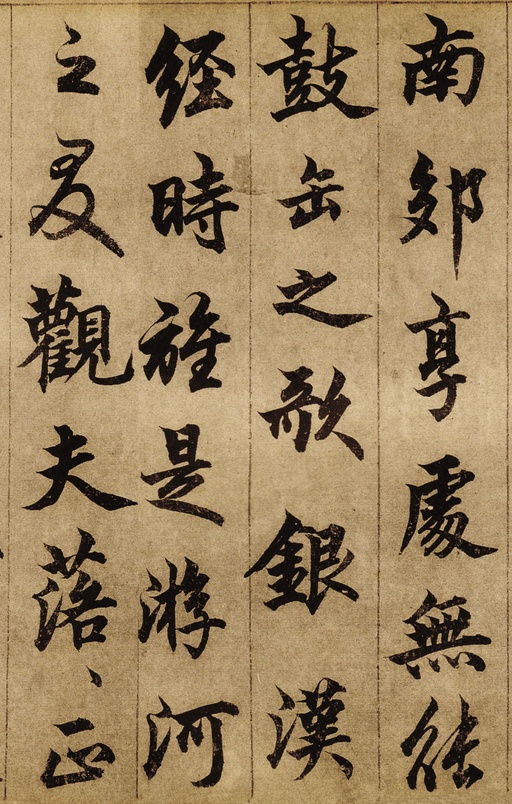 南郊享處無能
鼓缶之歌銀漢
經時是游河
之叟觀夫落、正